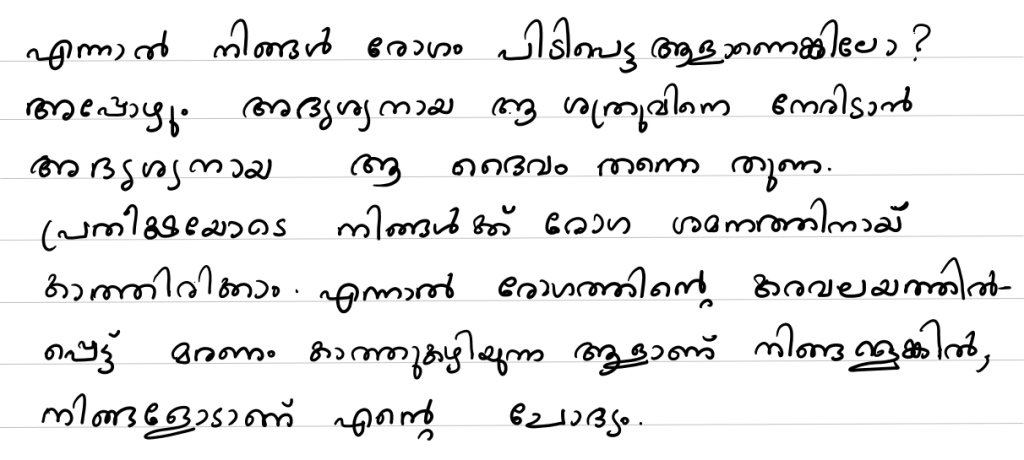 എന്നാൽ നിങ്ങൾ രോഗം പിടിപെട്ട ആളാണെങ്കിലോ?
അപ്പോഴും അദൃശ്യനായ ആ ശത്രുവിനെ നേരിടാൻ
അദൃശ്യനായ ആ ദൈവം തന്നെ തുണ.
പ്രതീക്ഷയോടെ നിങ്ങൾക്ക് രോഗ ശമനത്തിനായ്
കാത്തിരിക്കാം. എന്നാൽ രോഗത്തിന്റെ കരവലയത്തിൽ-
പ്പെട്ട് മരണം കാത്തുകഴിയുന്ന ആളാണ് നിങ്ങളെങ്കിൽ,
നിങ്ങളോടാണ് എന്റെ ചോദ്യം.